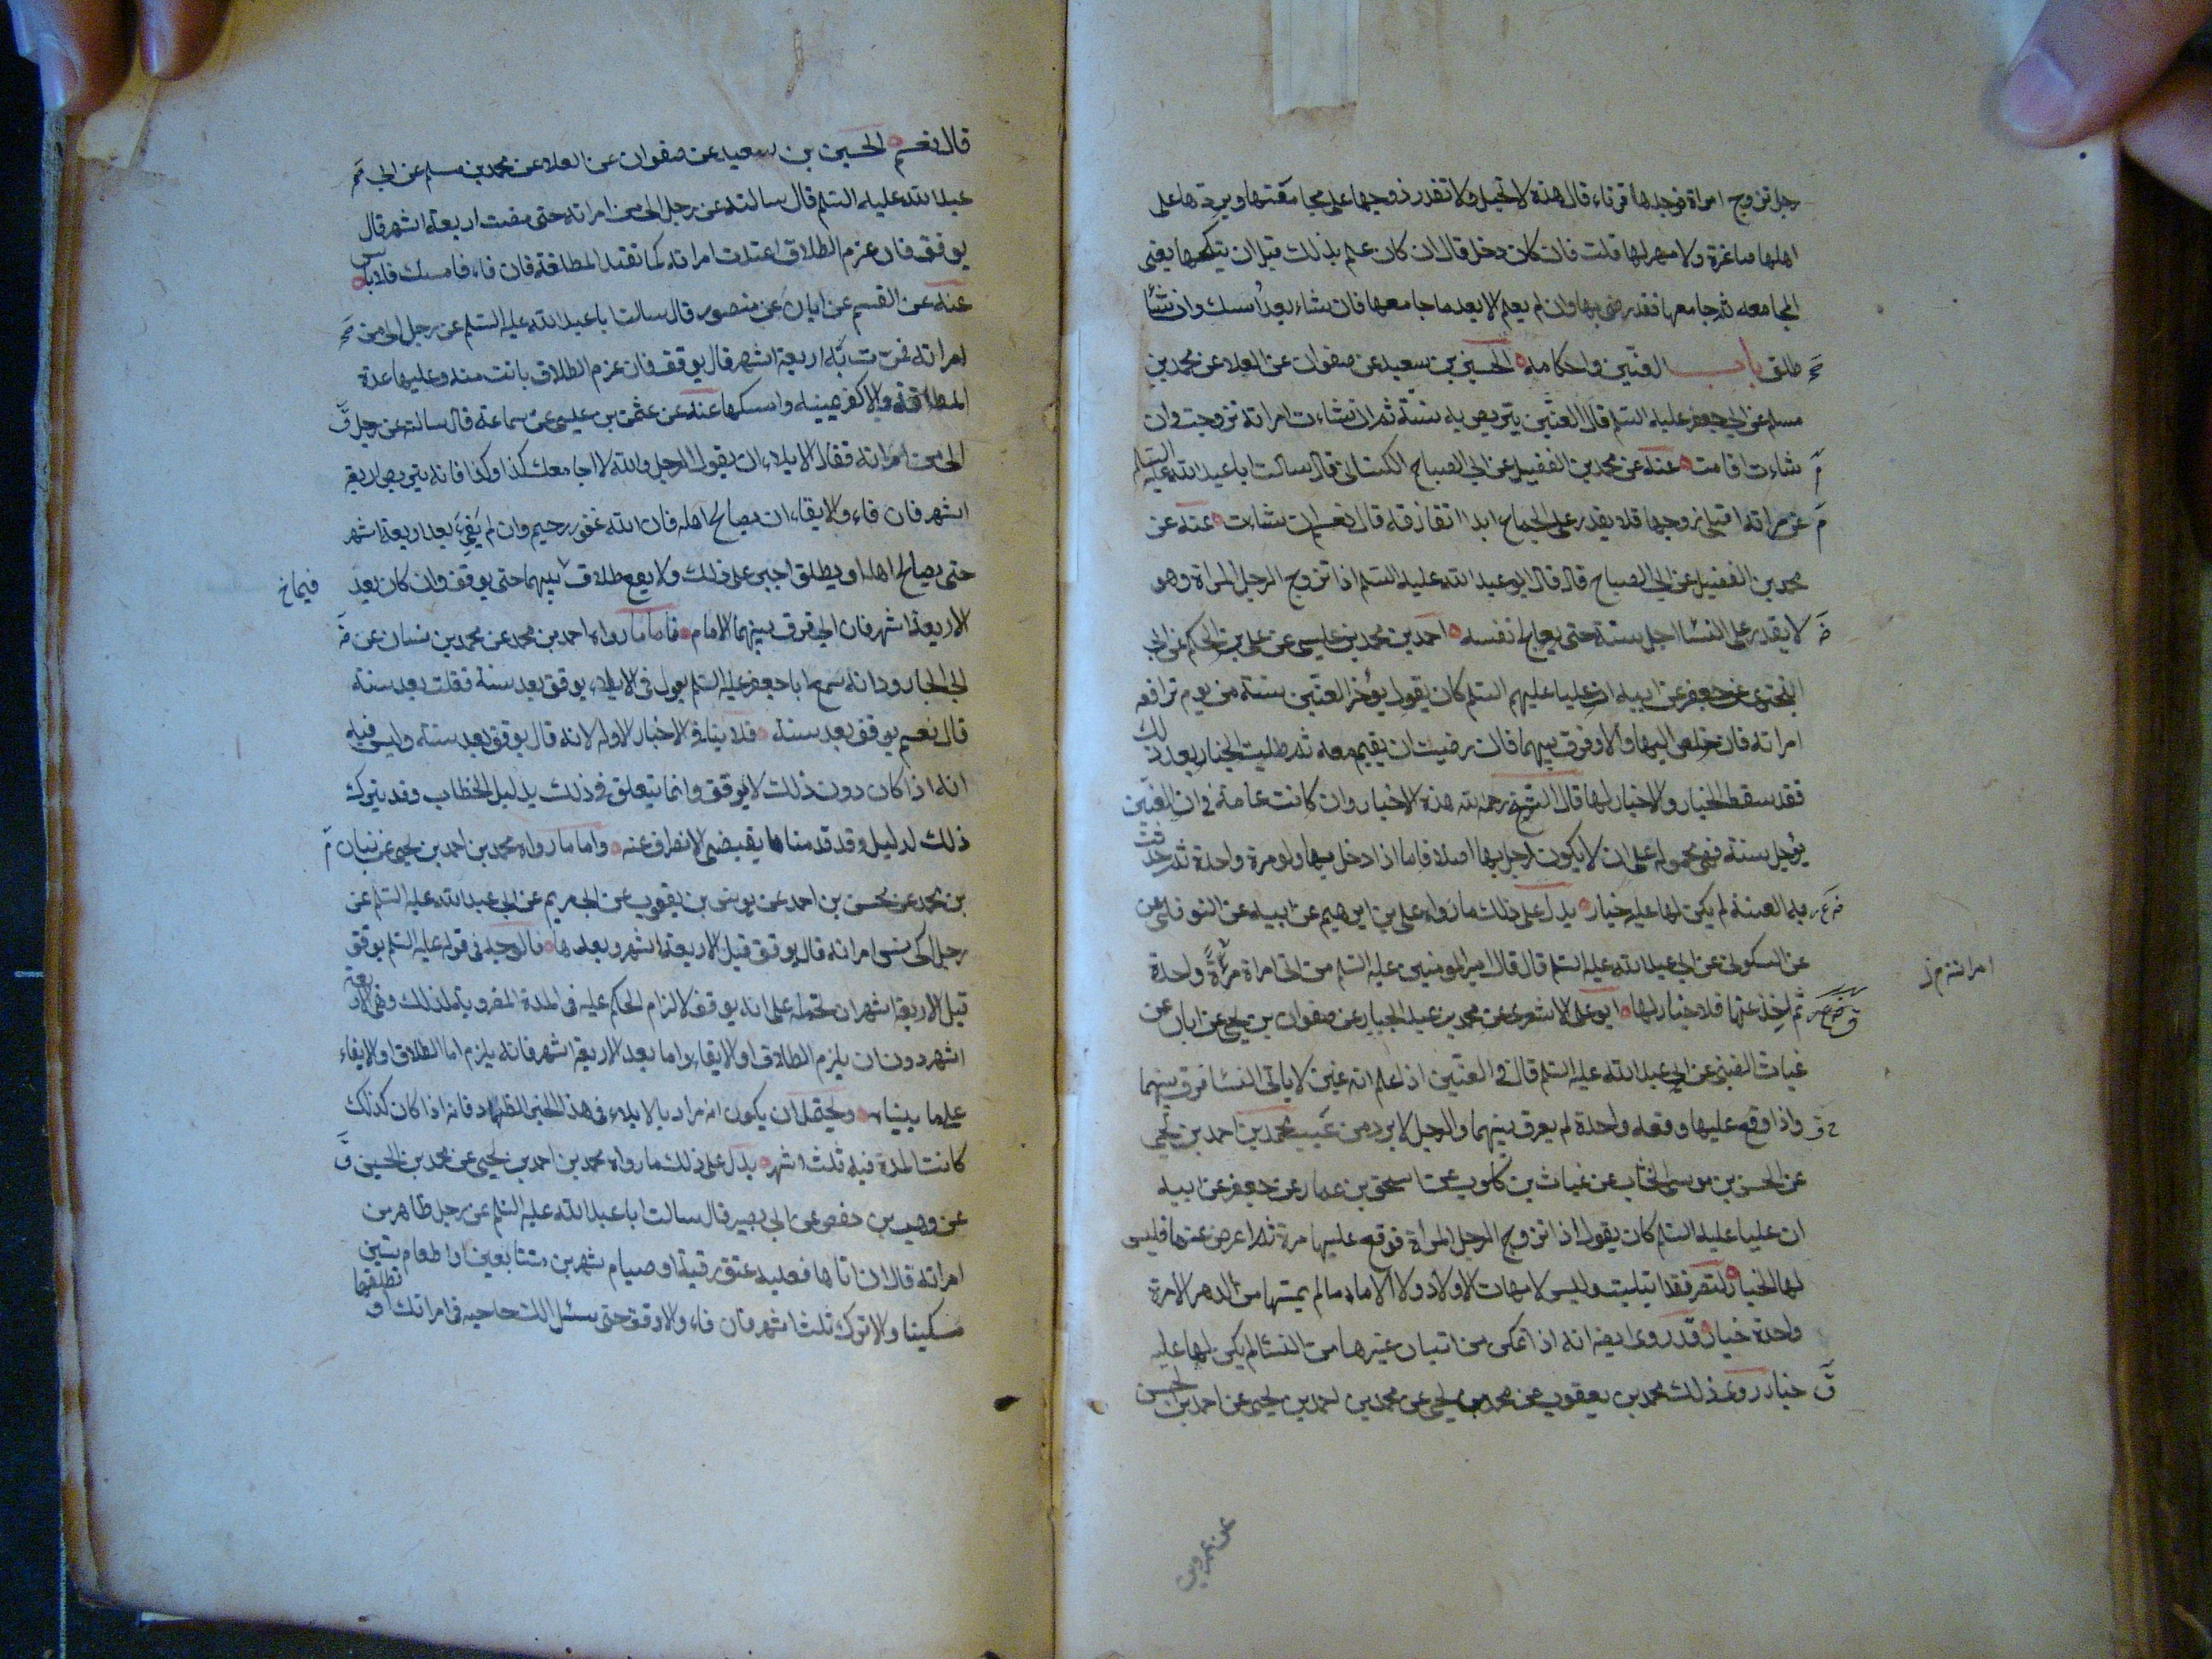 رجل تزوج امراة فوجدها قرناء قال هذه لا تحبل ولا تقدر زوجها على مجامعتها ويردها على
اهلها صاغرة ولا مهر لها قلت فان كان دخل قال ان كان علم بذلك قبل ان ينكحها يعنى
المجامعه ثم جامعها فقد رضى بها وان لم يعلم الا بعد ما جامعها فان شاء بعد امسك وان شاء
طلق باب العنين واحكامه الحسين بن سعيد عن صفوان عن العلاء عن محمد بن
مسلم عن ابى جعفر عليه السلم قال العنين يتربص به سنة ثم ان شاءت امراته تزوجت وان
شاءت اقامت عنه عن محمد بن الفضيل عن ابى الصباح الكنانى قال سالت ابا عبد الله عليه السلم
عن امراة ابتلى زوجها فلا يقدر على الجماع ابدا اتفارقه قال نعم ان شاءت عنه عن
محمد بن الفضيل عن ابى الصباح قال قال ابو عبد الله عليه السلم اذا تزوج الرجل المراة وهو
لا يقدر على النساء اجل سنة حتى يعالج نفسه احمد بن محمد بن عيسى عن على بن الحكم عن ابى
البخترى عن جعفر عن ابيه ان عليا عليهم السلم كان يقول يؤخر العنين سنة من يوم ترافعه
امراته فان خلص اليها والا فرق بينهما فان رضيت ان يقيم معه ثم طلبت الخيار بعد ذلك
فقد سقط الخيار ولا خيار لها قال الشيخ رحمه الله هذه الاخبار وان كانت عامة فى ان العنين
يؤجل سنة فهى محمولة على ان لا يكون دخل بها اصلا فاما اذا دخل بها ولو مرة واحدة ثم حدثت
بها العنة لم يكن لها عليه خيار يدل على ذلك ما رواه على بن ابرهيم عن ابيه عن النوفلى عن
عن السكونى عن ابى عبد الله عليه السلم قال قال امير المومنين عليه السلم من اتى امراة مرة واحدة
امراته م ز
ثم اخذ عنها فلا خيار لها ابو على الاشعرى عن محمد بن عبد الجبار عن صفوان بن يحيى عن ابان عن
غياث الضبى عن ابى عبد الله عليه السلم قال فى العنين اذا علم انه عنين لا ياتى النساء فرق بينهما
واذا وقع عليها وقعة واحدة لم يفرق بينهما والرجل لا يرد من عيب محمد بن احمد بن يحيى
عن الحسن بن موسى الخشاب عن غياث بن كلوب عن اسحق بن عمار عن جعفر عن ابيه
ان عليا عليه السلم كان يقول اذا تزوج الرجل المرأة فوقع عليها مرة ثم اعرض عنها فليس
لها الخيار لتصبر فقد ابتليت وليس لامهات الاولاد ولا الاماء ما لم يمسها من الدهر الا مرة
واحدة خيار وقد روى ايضا انه اذا تمكن من اتيان غيرها من النساء لم يكن لها عليه
خيار روى ذلك محمد بن يعقوب عن محمد بن يحيى عن محمد بن احمد بن يحيى عن احمد بن الحسن
عن عمرو بن
قال نعم الحسين بن سعيد عن صفوان عن العلاء عن محمد بن مسلم عن ابى
عبد الله عليه السلم قال سالته عن رجل الى من امراته حتى مضت اربعة اشهر قال
يوقف فان عزم الطلاق اعتدت امراته كما تعتد المطلقة فان فاء فامسك فلا باس
عنه عن القسم عن ابان عن منصور قال سالت ابا عبد الله عليه السلم عن رجل الى من
امراته فمرت به اربعة اشهر قال يوقف فان عزم الطلاق بانت منه وعليها عدة
المطلقة والا كفر يمينه وامسكها عنه عن عثمن بن عيسى عن سماعة قال سالته عن رجل
الى من امراته فقال الايلاء ان يقول الرجل والله لا اجامعك كذا وكذا فانه يتربص اربعة
اشهر فان فاء والايفاء ان يصالح اهله فان الله غفور رحيم وان لم يفئ بعد اربعة اشهر
حتى يصالح اهله او يطلق اجبر على ذلك ولا يقع طلاق بينهما حتى يوقف وان كان بعد
فيما خ
الاربعة اشهر فان ابى فرق بينهما الامام فاما ما رواه احمد بن محمد عن محمد بن سنان عن
ابى الجارود انه سمع ابا جعفر عليه السلم يقول فى الايلاء يوقف بعد سنة فقلت بعد سنة
قال نعم يوقف بعد سنة فلا ينافى الاخبار الاوله لانه قال يوقف بعد سنة وليس فيه
انه اذا كان دون ذلك لا يوقف وانما يتعلق فى ذلك بدليل الخطاب وقد يترك
ذلك لدليل وقد قدمنا ما يقتضى الانصراف عنه واما ما رواه محمد بن احمد بن يحيى عن بنان
بن محمد عن محسن بن احمد عن يونس بن يعقوب عن ابى مريم عن ابى عبد الله عليه السلم عن
رجل الى من امراته قال يوقف قبل الاربعة اشهر وبعدها فالوجه فى قوله عليه السلم يوقف
قبل الاربعة اشهر ان نحمله على انه يوقف لالزام الحكم عليه فى المدة المضروبة لذلك وهى الاربعة
اشهر دون ان يلزم الطلاق او الايفاء واما بعد الاربعة اشهر فانه يلزم اما الطلاق او الايفاء
على ما بيناه ويحتمل ان يكون انه مراد بالايلاء فى هذا الخبر الظهار فانه اذا كان كذلك
كانت المدة فيه ثلث اشهر يدل على ذلك ما رواه محمد بن احمد بن يحيى عن محمد بن الحسين
عن وهيب بن حفص عن ابى بصير قال سالت ابا عبد الله عليه السلم عن رجل ظاهر من
امراته قال ان اتاها فعليه عتق رقبة او صيام شهرين متتابعين او اطعام ستين
مسكينا والا ترك ثلث اشهر فان فاء والا وقف حتى يسئل الك حاجة فى امراتك او تطلقها